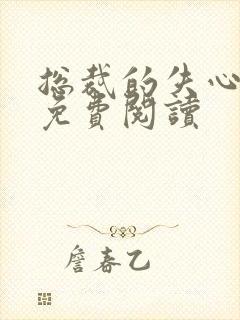 总裁的失心
免費閱讀
詹春乙